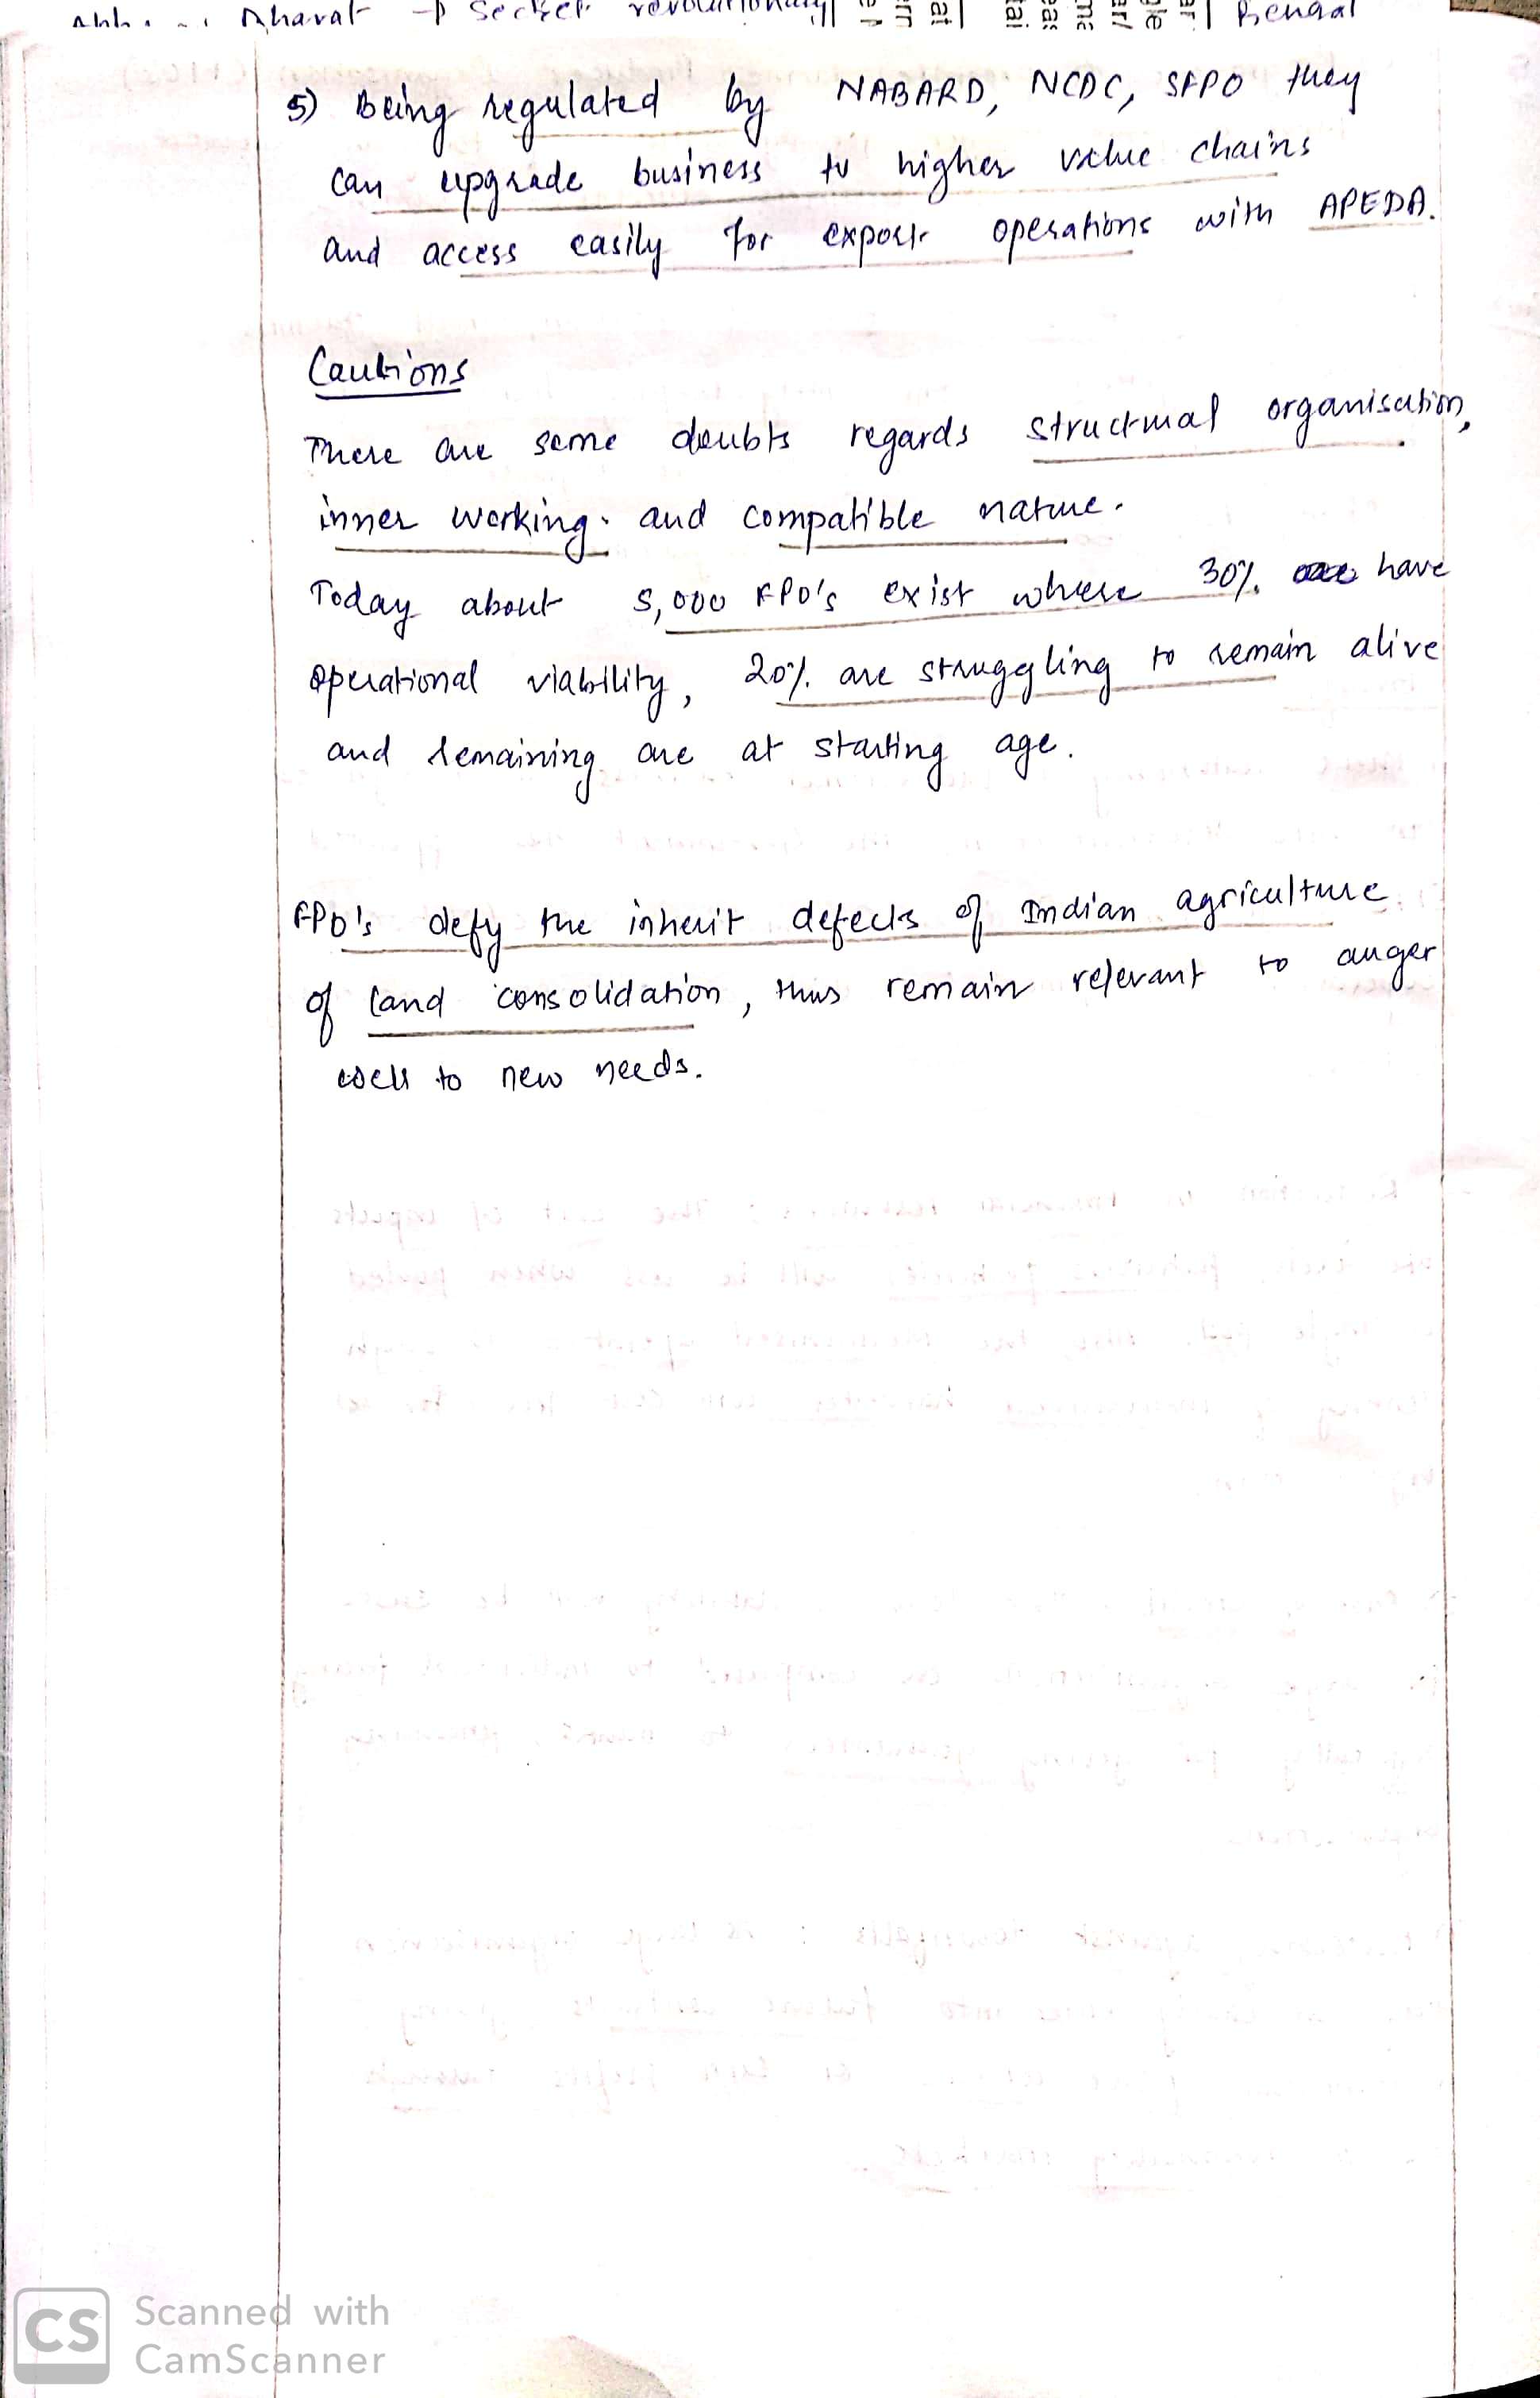 Bharat → Secret revolutionary
Bengal
5) Being regulated by NABARD, NCDC, SFPO they
can upgrade business to higher value chains
and access easily for export operations with APEDA.
Cautions
There are some doubts regards structural organisation,
inner working. and compatible nature.
Today about 5,000 FPO's exist where 30% have
operational viability, 20% are struggling to remain alive
and remaining are at starting age.
FPO's defy the inherit defects of Indian agriculture
of land consolidation, thus remain relevant to auger
well to new needs.
CS Scanned with
CamScanner